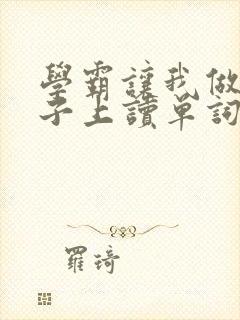 學霸讓我做
子上讀單詞
羅琦